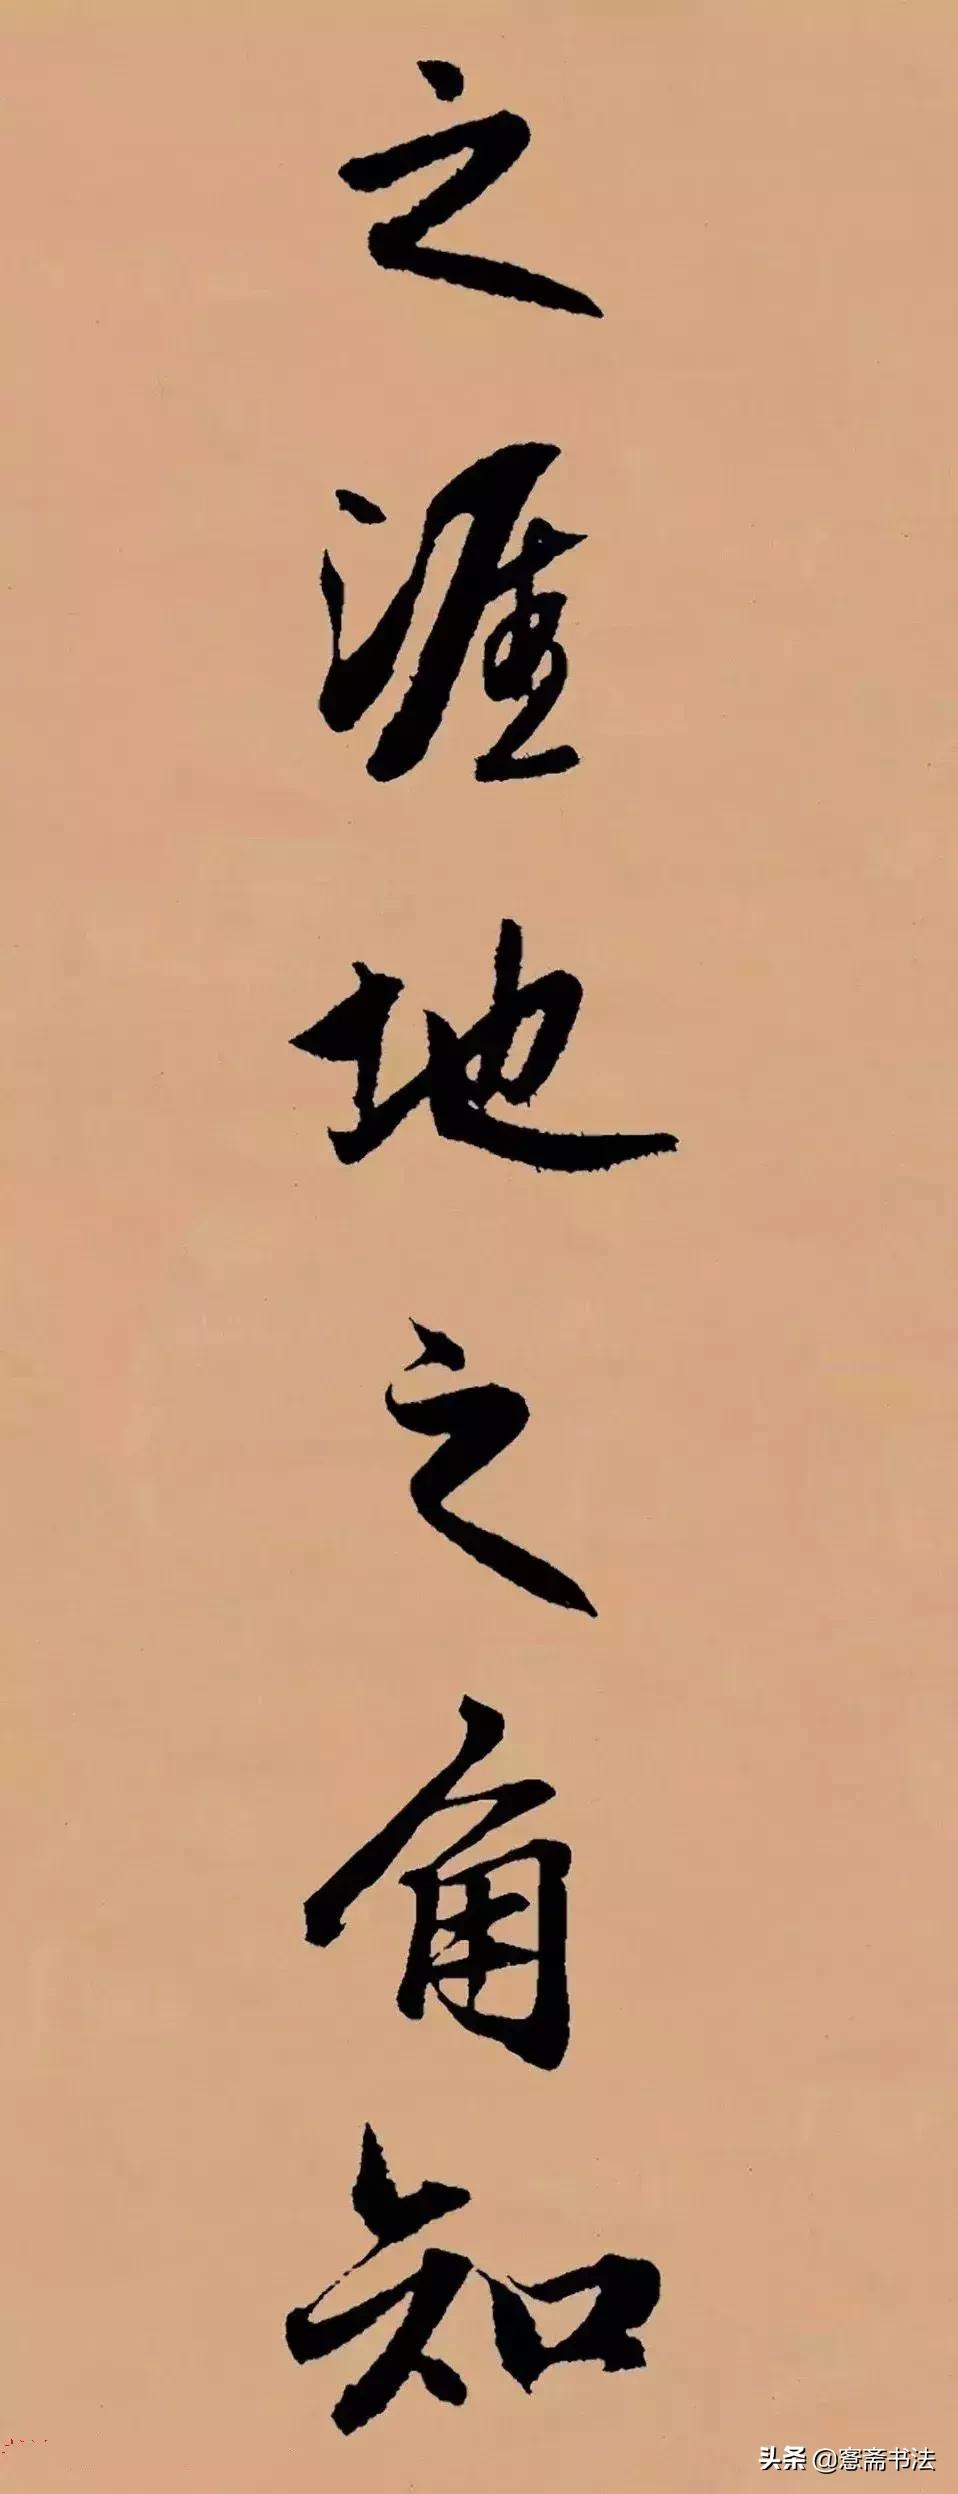 之涯地之角知
头条 @窓斋书法